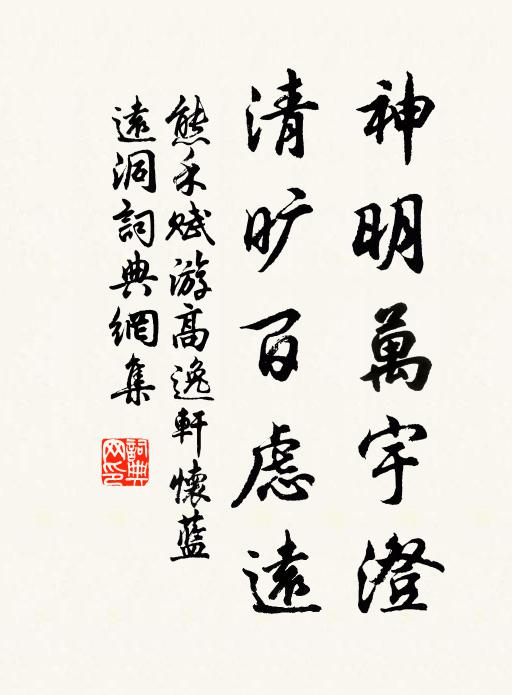 神明萬宇澄
清旷百慮遠
熊禾賦游高逸軒懷藍
遠洞詞典網集
詞典
网印